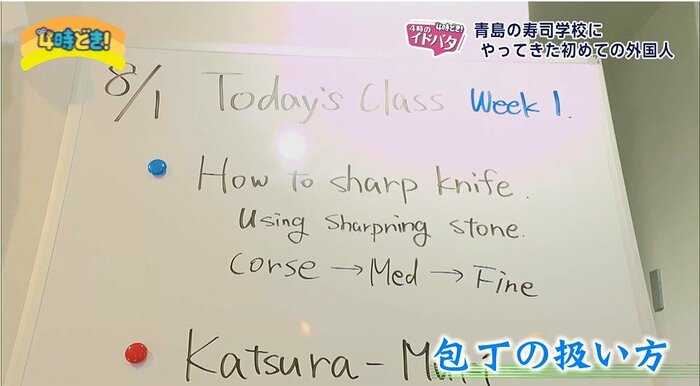 4時どき!
4時どき!
4時の
イドバタ
青島の寿司学校に
やってきた初めての外国人
8/1 Today's Class Week 1.
How to sharp knife.
Using Sharpning stone.
Corse → Med → Fine
Katsura-
包丁の扱い方